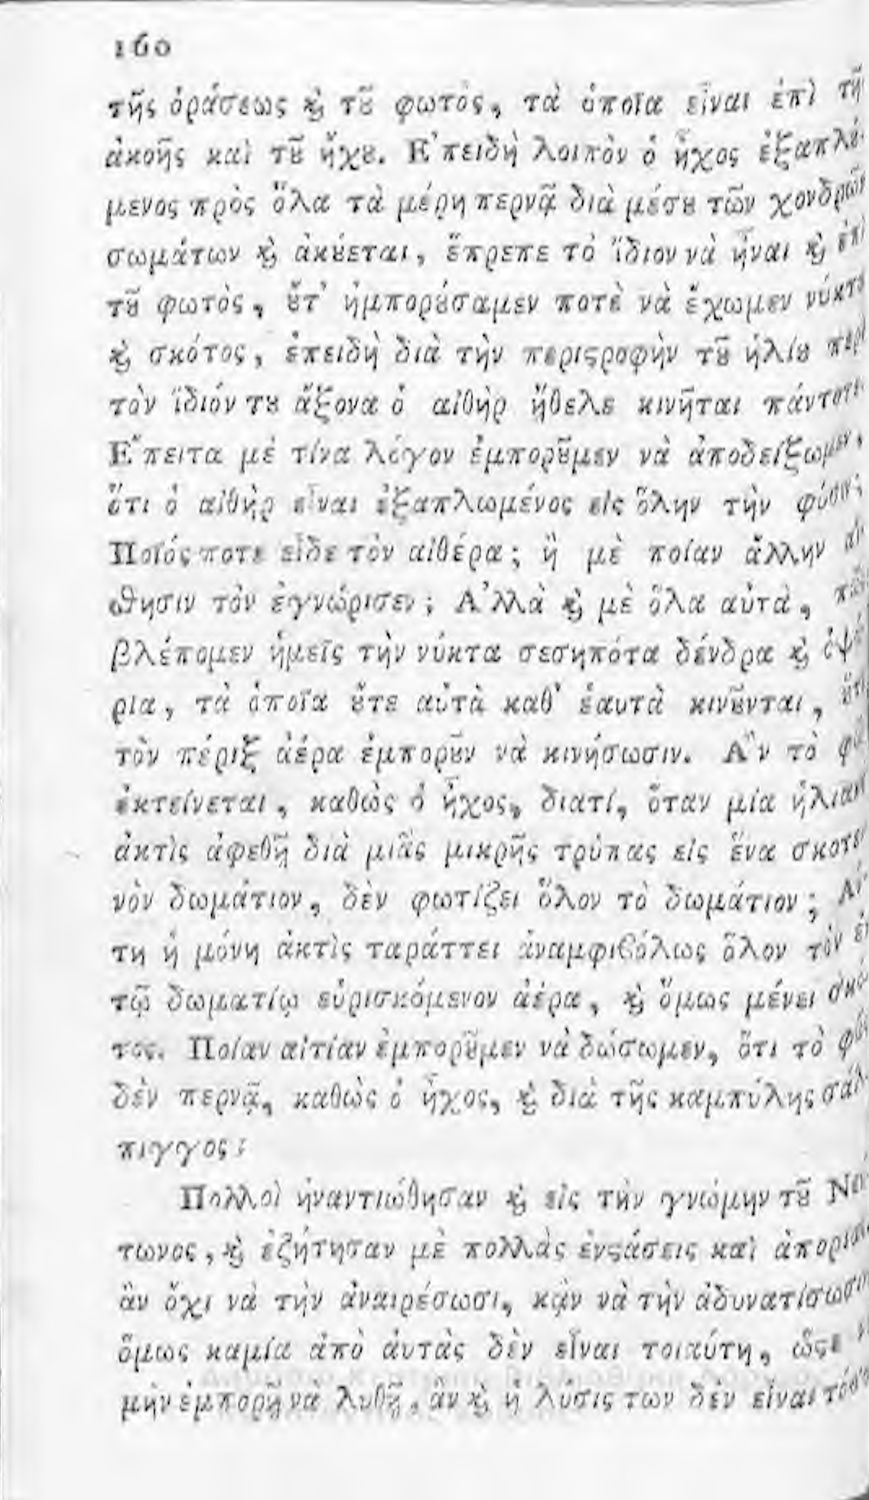 160
τῆς ὁράσεως ϗ τȣ͂ φωτὸς, τὰ ὁποῖα εἶναι ἐπὶ τῆ
ἀκοῆς καὶ τȣ͂ ἤχȣ. Ε᾿πειδὴ λοιπὸν ὁ ἦχος ἐξαπλό-
μενος πρὸς ὅλα τὰ μέρη περνᾷ διὰ μέσȣ τῶν χονδρῶν
σωμάτων ϗ ἀκȣ́εται, ἔπρεπε τὸ ἴδιον νὰ ἦναι ϗ ἐπὶ
τȣ͂ φωτὸς, ȣ̓́τ' ἠμπορȣ́σαμεν ποτὲ νὰ ἔχωμεν νύκτα
ϗ σκότος, ἐπειδὴ διὰ τὴν περιϛροφὴν τȣ͂ ἡλίȣ περὶ
τὸν ἴδιόν τȣ ἄξονα ὁ αἰθὴρ ἤθελε κινῆται πάντοτε.
Ε῎πειτα μὲ τίνα λόγον ἐμπορȣ͂μεν νὰ ἀποδείξωμεν,
ὅτι ὁ αἰθὴρ εἶναι ἐξαπλωμένος εἰς ὅλην τὴν φύσιν;
Ποῖός ποτε εἶδε τὸν αἰθέρα; ἢ μὲ ποίαν ἄλλην αἴ-
ϑησιν τὸν ἐγνώρισεν; Α᾿λλὰ ϗ μὲ ὅλα αὐτὰ, πῶς
βλέπομεν ἡμεῖς τὴν νύκτα σεσηπότα δένδρα ϗ ὀψά-
ρια, τὰ ὁποῖα ȣ̓́τε αὐτὰ καθ' ἑαυτὰ κινȣ͂νται, ȣ̓́τε
τὸν πέριξ ἀέρα ἐμπορȣ͂ν νὰ κινήσωσιν. Α῍ν τὸ φῶς
ἐκτείνεται, καθὼς ὁ ἦχος, διατί, ὅταν μία ἡλιακὴ
ἀκτὶς ἀφεθῇ διὰ μιᾶς μικρῆς τρύπας εἰς ἕνα σκοτει-
νὸν δωμάτιον, δὲν φωτίζει ὅλον τὸ δωμάτιον; Αὕ-
τη ἡ μόνη ἀκτὶς ταράττει ἀναμφιβόλως ὅλον τὸν ἐν
τῷ δωματίῳ εὑρισκόμενον ἀέρα, ϗ ὅμως μένει σκό-
τος. Ποίαν αἰτίαν ἐμπορȣ͂μεν νὰ δώσωμεν, ὅτι τὸ φῶς
δὲν περνᾷ, καθὼς ὁ ἦχος, ϗ διὰ τῆς καμπύλης σάλ-
πιγγος;
Πολλοὶ ἠναντιώθησαν ϗ εἰς τὴν γνώμην τȣ͂ Νεύ-
τωνος, ϗ ἐζήτησαν μὲ πολλὰς ἐνϛάσεις καὶ ἀπορίας
ἂν ὄχι νὰ τὴν ἀναιρέσωσι, κᾂν νὰ τὴν ἀδυνατίσωσιν
ὅμως καμία ἀπὸ αὐτὰς δὲν εἶναι τοιαύτη, ὥϛε νὰ
μὴν ἐμπορῇ νὰ λυθῇ, ἂν ϗ ἡ λύσις των δὲν εἶναι τόσον